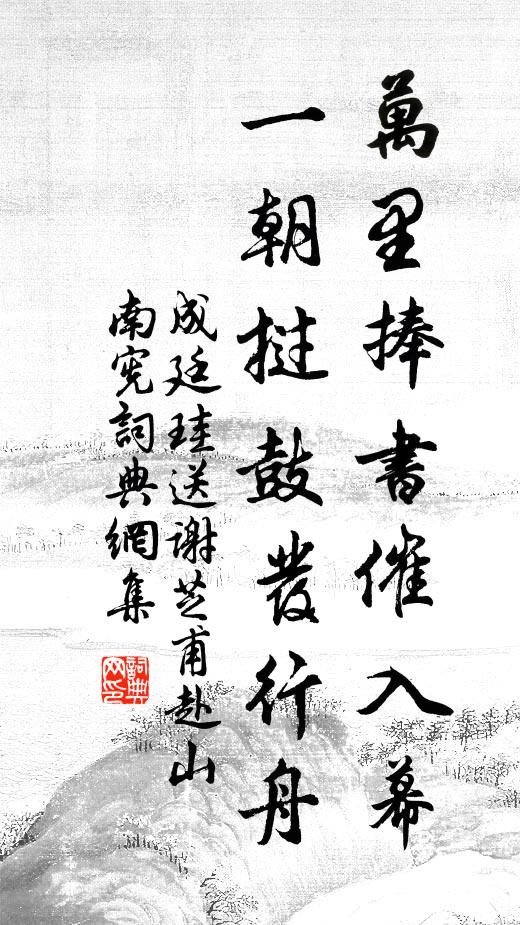 萬里捧書催入幕
一朝撾鼓發行舟
成廷珪送謝芝甫赴山
南憲詞典網集
詞典
网印